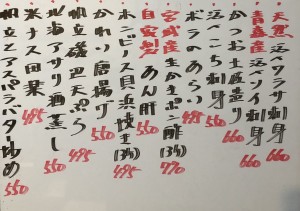 天然活ヘラサ刺身 660
青森産活ベソイ刺身 660
かつお土佐造り 660
活こち刺身 560
ボラのあらい 495
宮城産生かきポン酢(3ヶ) 770
自家製あん肝
ホンビス貝浜焼き(3ヶ) 495
かわり唐揚げ 550
帆立磯辺天ぷら 495
北海アサリ酒蒸し 550
米ナス田楽 495
帆立とアスパラバター炒め 550